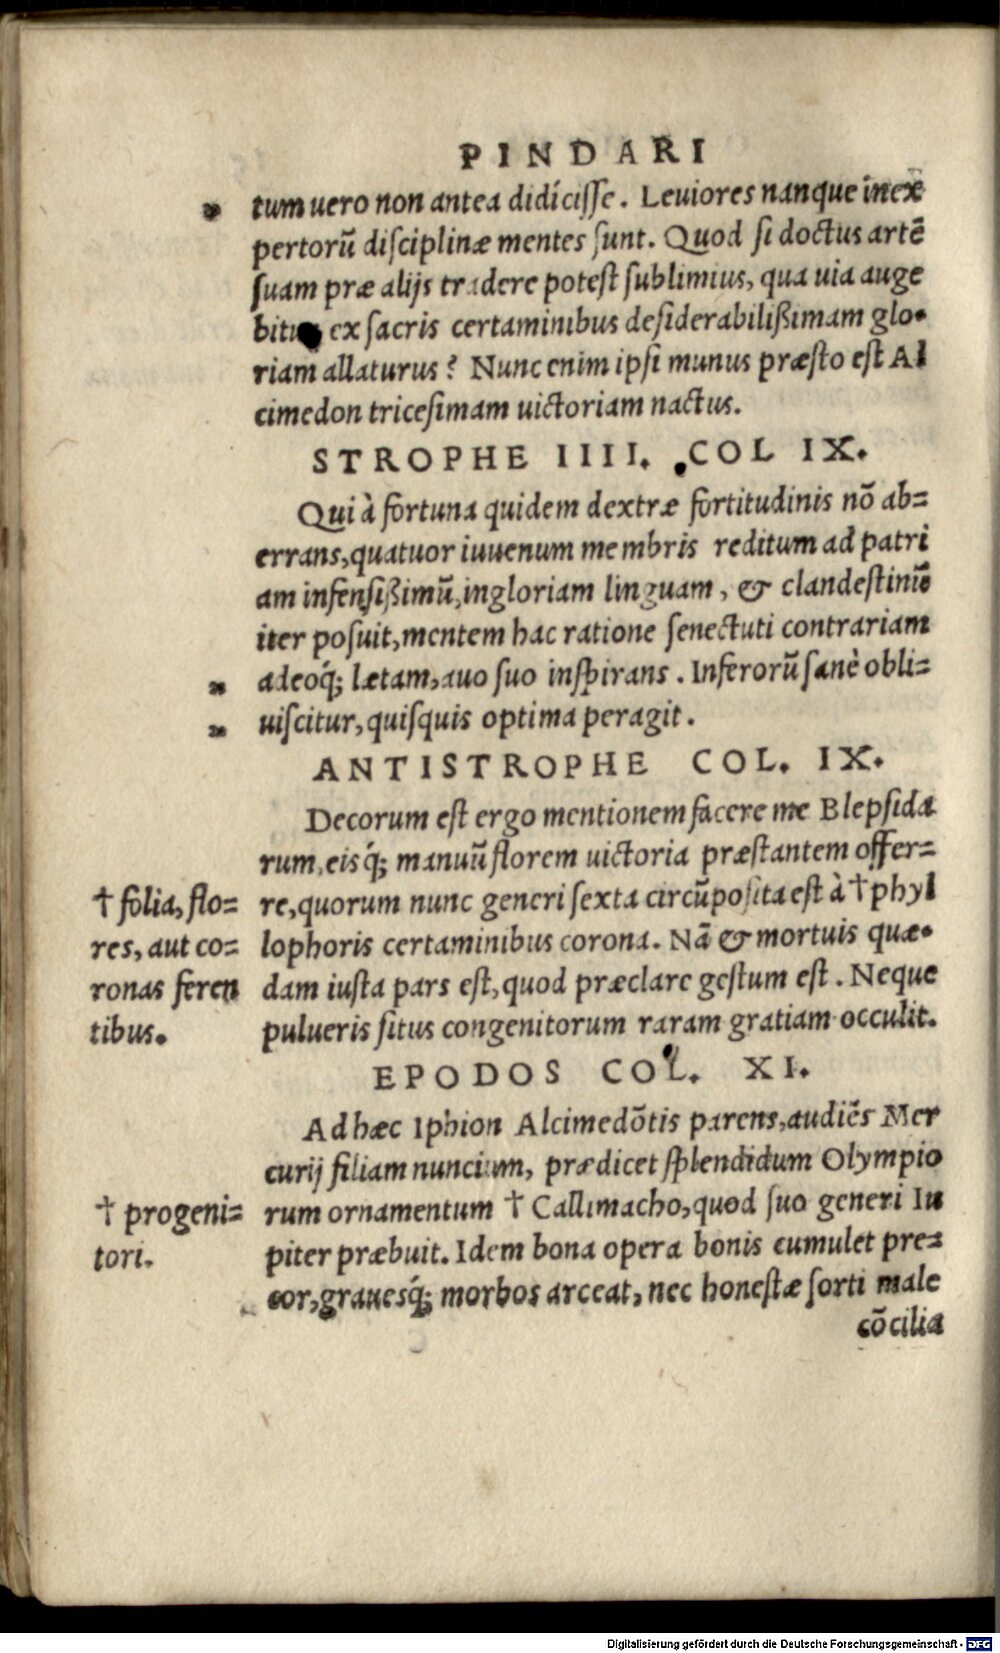 PINDARI
„ tum uero non antea didicisse. Leuiores nanque inex
pertorū disciplinæ mentes sunt. Quod si doctus artē
suam præ alijs tradere potest sublimius, qua uia auge
bitur ex sacris certaminibus desiderabilißimam glo-
riam allaturus? Nunc enim ipsi munus præsto est Al
cimedon tricesimam uictoriam nactus.
STROPHE IIII. COL IX.
Qui à fortuna quidem dextræ fortitudinis nō ab=
errans, quatuor iuuenum membris reditum ad patri
am infensißimū, ingloriam linguam, & clandestinū
iter posuit, mentem hac ratione senectuti contrariam
„ adeoq́; lætam, auo suo inspirans. Inferorū sanè obli=
„ uiscitur, quisquis optima peragit.
ANTISTROPHE COL. IX.
Decorum est ergo mentionem facere me Blepsida
rum, eisq́; manuū florem uictoria præstantem offer=
re, quorum nunc generi sexta circūposita est à † phyl
lophoris certaminibus corona. Nā & mortuis quæ-
dam iusta pars est, quod præclare gestum est. Neque
pulueris situs congenitorum raram gratiam occulit.
† folia, flo=
res, aut co=
ronas feren
tibus.
EPODOS COL. XI.
Ad hæc Iphion Alcimedōtis parens, audiēs Mer
curij filiam nuncium, prædicet splendidum Olympio
rum ornamentum † Callimacho, quod suo generi Iu
piter præbuit. Idem bona opera bonis cumulet pre=
cor, grauesq́; morbos arceat, nec honestæ sorti male
† progeni=
tori.
cōcilia
Digitalisierung gefördert durch die Deutsche Forschungsgemeinschaft - DFG